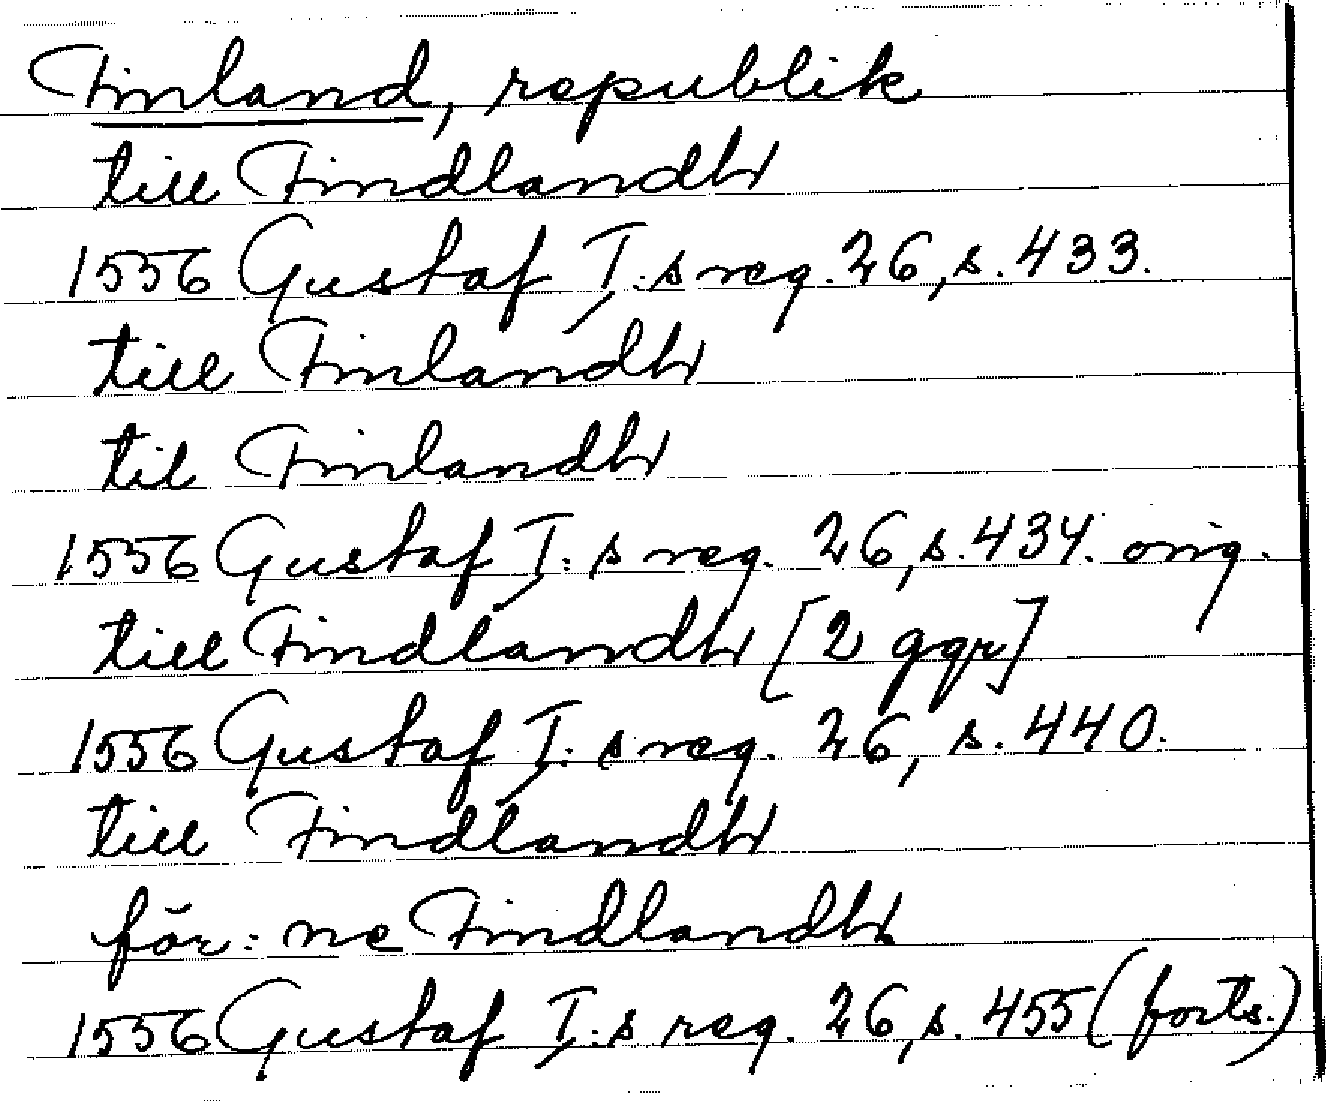 Finland, republik
till Findlandh
1556 Gustaf I:s reg. 26, s. 433.
till Finlandh
til Finlandh
1556 Gustaf I:s reg. 26, s. 434. orig.
till Findlandh [2 ggr]
1556 Gustaf I:s reg. 26, s. 440.
till Findlandh
för:ne Findlandh
1556 Gustaf I:s reg. 26, s. 455 (forts.)